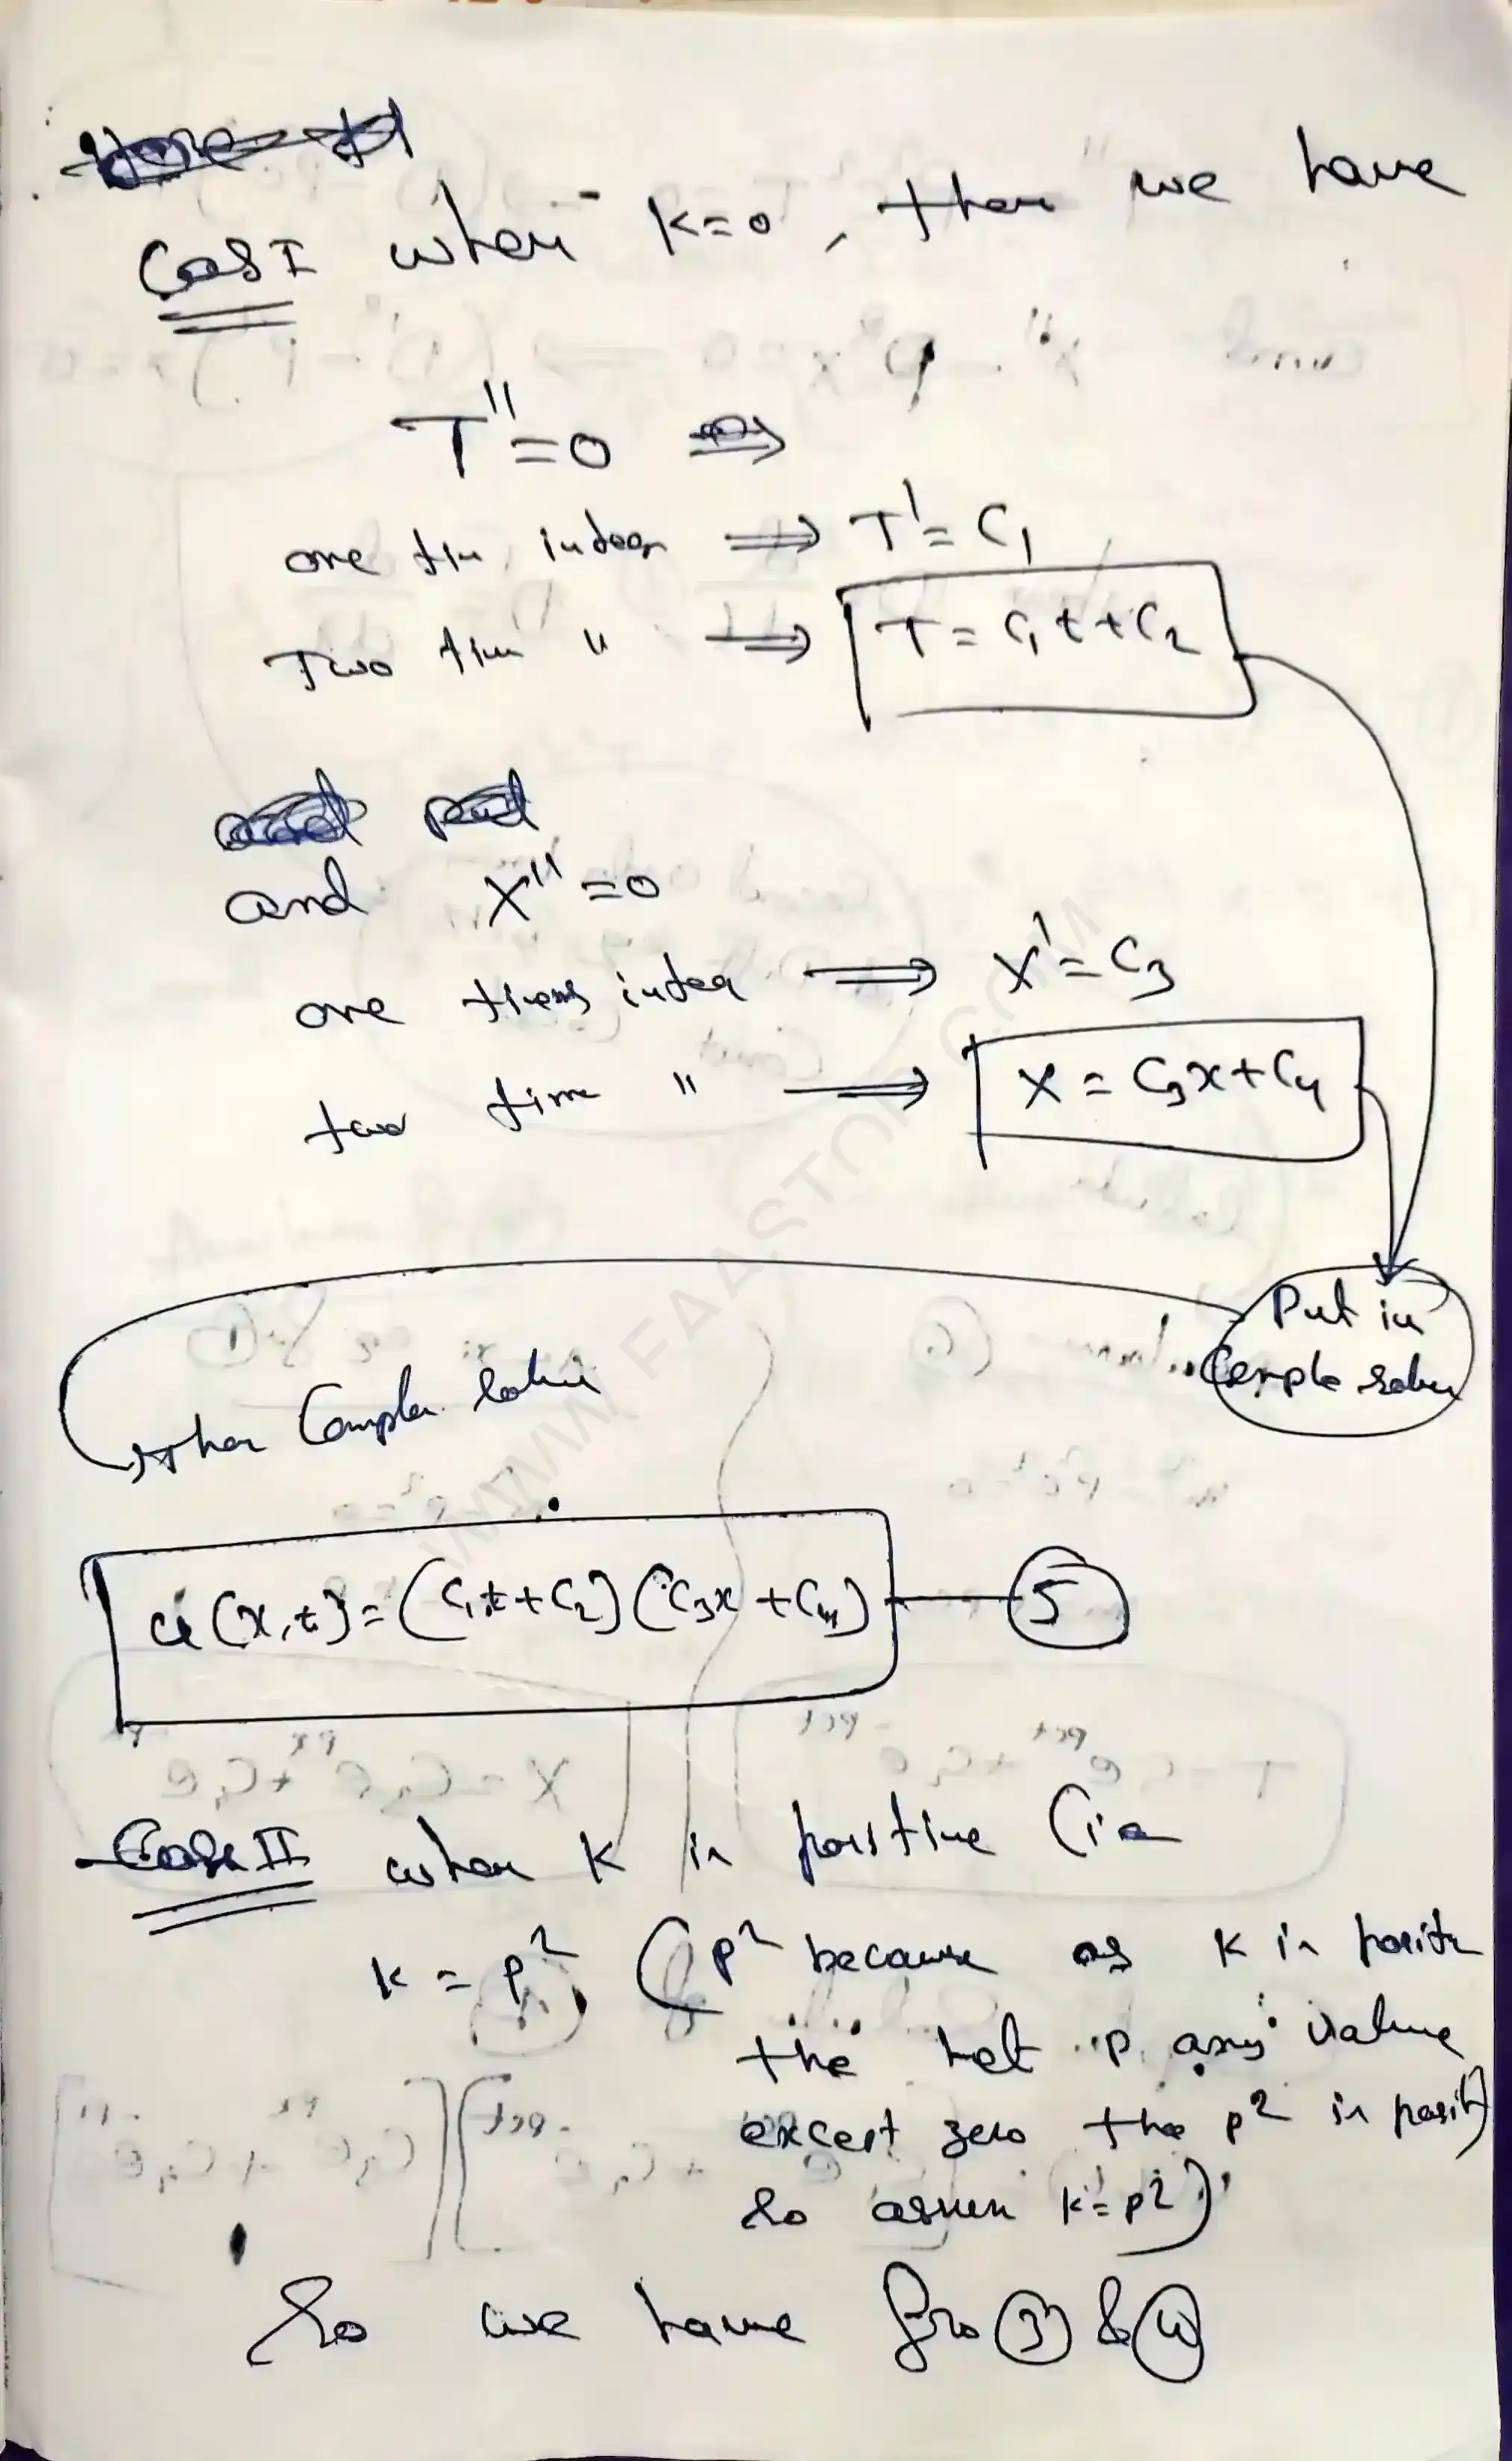 Case I when k=0, then we have
T''=0 ⇒
one tim integ ⇒ T'=C1
Two tim " ⇒ T = C1 t + C2
and X''=0
one times integ ⇒ X'=C3
two time " ⇒ X = C3x+C4
Put in
Comple solu
then Comple Solui
u(x,t)=(C1t+C2)(C3x+C4) — 5
Case II when K is positive (ie
k = p², (p² because as K is positi
the let p any value
except zero the p² is posit)
So assum k=p²)
So we have fro 3 & 4
WWW.FAASTOP.COM